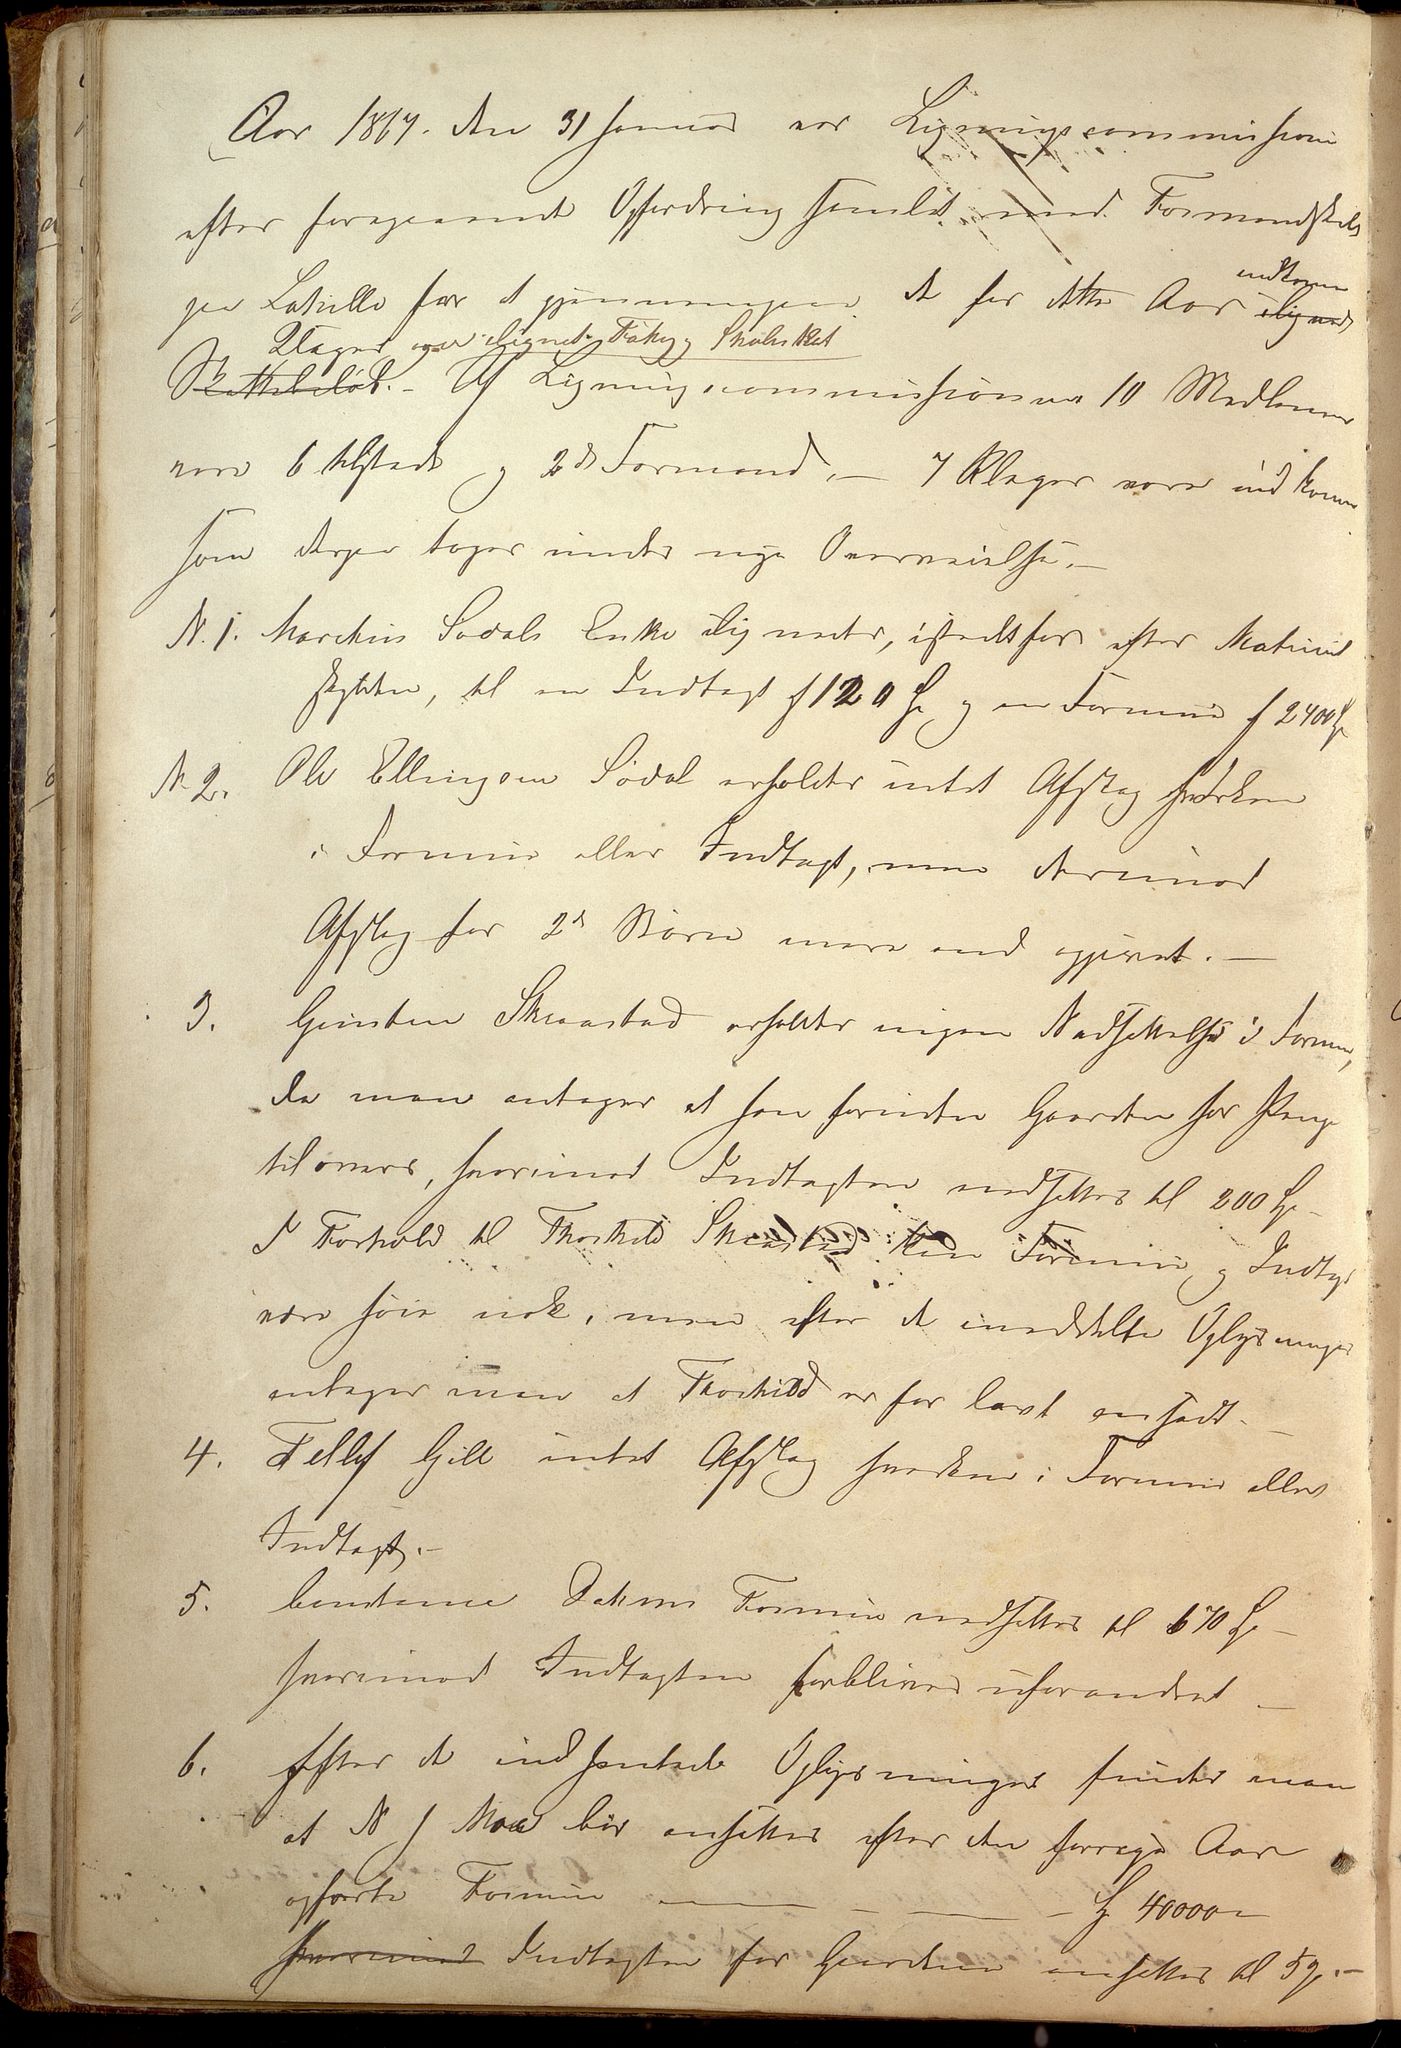 Aar 1867. den 31 Januar var Ligningscommissionen
efter foregaaende Opfordring samlet med Formandskabet
paa for at gjennemgaae de for dette Aar indkomne ilignede
Klager over ilignet Fattig og Skoleskat
Skattebeløb. – Af Ligningscommissionens 10 Medlemmer
vare 6 tilstede og 2de Formænd. – 7 Klager vare indkomne
som derpaa toges under nye Overveielse. –
N. 1. Markus Sødals Enke ilignedes, istedetfor efter Matrikul
skylden, til en Indtægt af 120 Spd og en Formue af 2400 Spd
N. 2. Ole Ellingsen Sødal erholder intet Afslag hverken
i Formue eller Indtægt, men derimod
Afslag for 2de Børn mere end opgivet. –
3. Gunsten Skraastad erholder ingen Nedsættelse i Formue,
da man antager at han foruden Gaarden har Penge
tilovers, hvorimod Indtægten nedsættes til 200 Spd –
I Forhold til Thorkild Skraastad kan Formue og Indtægt
være høie nok, men efter de meddelte Oplysninger
antager man at Thorkild er for lavt ansadt. –
4. Tellef Gill intet Afslag hverken i Formue eller
Indtægt. –
5. Formue nedsættes til 670 Spd –
hvorimod Indtægten forbliver uforandret –
6. Efter de indhentede Oplysninger finder man
at N J Moe bør ansættes efter den forrige Aar
opførte Formue — — — Spd 4000 –
hvorimod Indtægten for Gaarden ansættes til 5